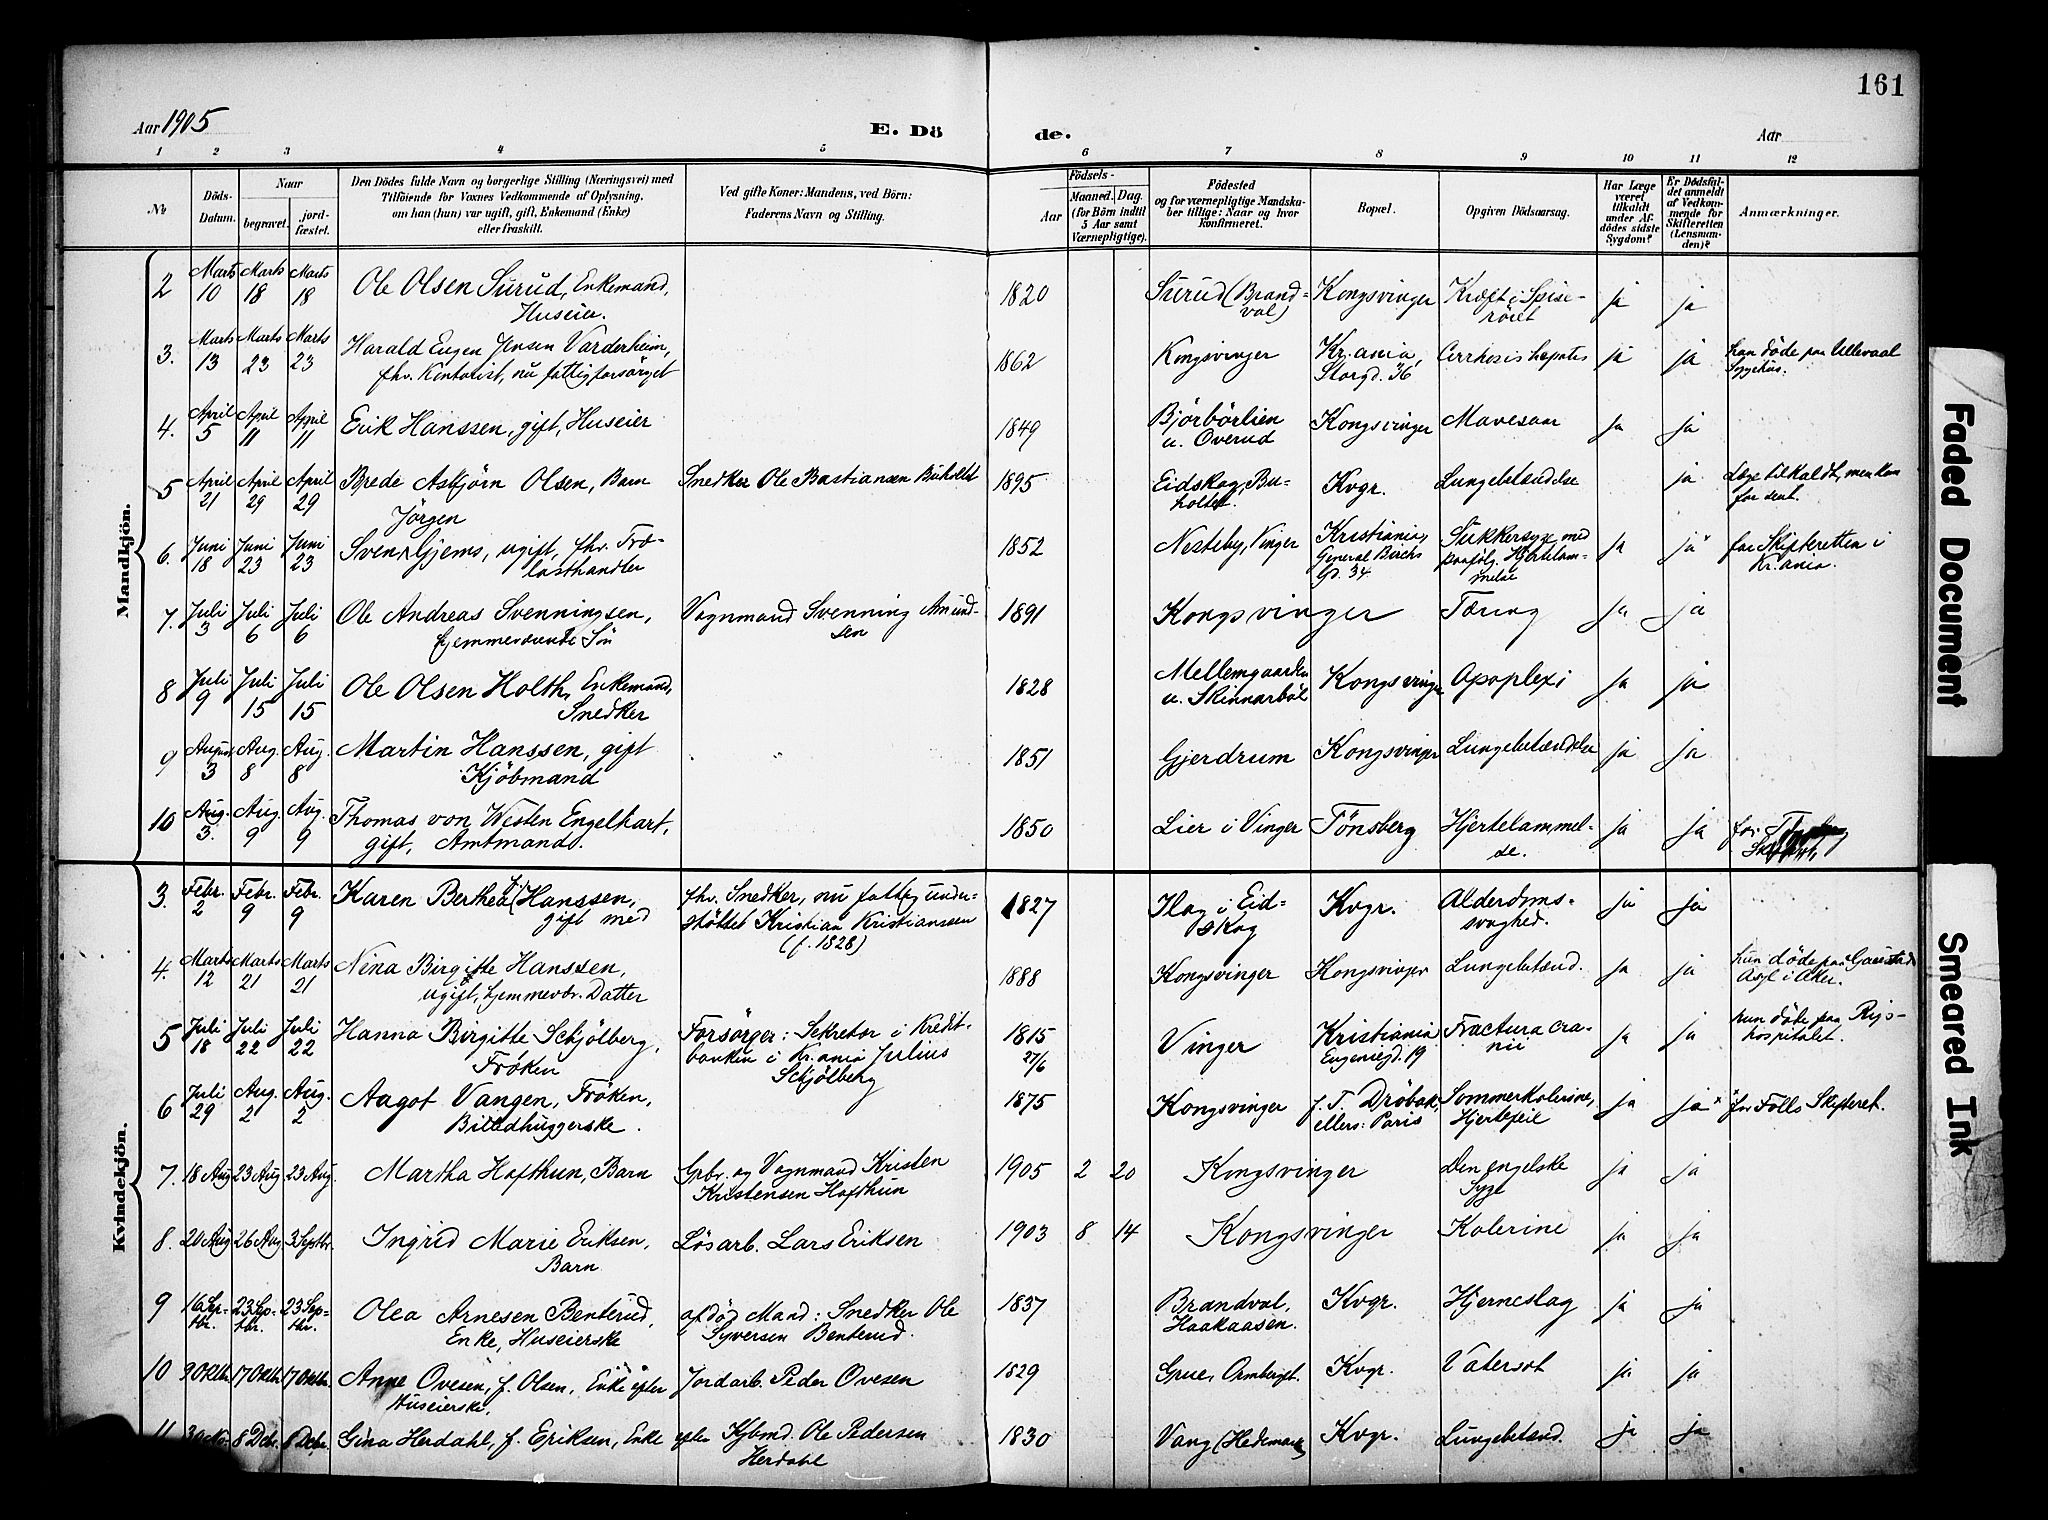 161
Aar 1905
E. Dö de.
Aar
1 2 3 4 5 6 7 8 9 10 11 12
№
Döds-Datum.
Naar
begravet.
jord-fæstet.
Den Dödes fulde Navn og borgerlige Stilling (Næringsvei) med
Tilföiende for Voxnes Vedkommende af Oplysning,
om han (hun) var ugift, gift, Enkemand (Enke)
eller fraskilt.
Ved gifte Koner: Mandens, ved Börn:
Faderens Navn og Stilling.
Födsels-
Aar
Maaned. Dag.
(for Börn indtil
5 Aar samt
Værnepligtige).
Födested
og for værnepligtige Mandska-
ber tillige: Naar og hvor
Konfirmeret.
Bopæl.
Opgiven Dödsaarsag.
Har Læge
været
tilkaldt
under Af-
dödes sidste
Sygdom?
Er Dödsfal-
det anmeldt
af Vedkom-
mende for
Skifteretten
(Lensman-
den)?
Anmærkninger.
Mandkjön.
2 Marts 10 Marts 18 Marts 18 Ole Olsen Surud, Enkemand, Huseier. 1820 Surud (Brand-val) Kongsvinger Kræft i Spise-röret ja ja
3. Marts 13 Marts 23 Marts 23 Harald Eugen Jensen Varderheim, fhv. Kontorist, nu fattigforsörget 1862 Kongsvinger Kr.ania, Storgd. 36 Cirrhosis hepatis ja ja han döde paa Ullevaal Sygehus.
4. April 5 April 11 April 11 Erik Hanssen, gift, Huseier 1849 Björbörlien u. Overud Kongsvinger Mavesaar ja ja
5 April 21 April 29 April 29 Brede Asbjörn Olsen, Barn Snedker Ole Bastiansen Buholdt 1895 Eidskog, Bu-holtet. Kvgr. Lungebetændelse ja Læge tilkaldt, men kom for sent.
6. Juni 18 Juni 23 Juni 23 Sven Jörgen Gjems, ugift, fhv. Træ-lasthandler 1852 Nesteby, Vinger Kristiania, General Birchs Gd. 34 Sukkersyge med paafölg. Hjertelam-melse ja ja" for Skifteretten i Kr.ania.
7. Juli 3 Juli 6 Juli 6 Ole Andreas Svenningsen, hjemmeværende Sön Vognmand Svenning Amund-sen 1891 Kongsvinger Tæring ja ja
8 Juli 9 Juli 15 Juli 15 Ole Olsen Holth, Enkemand, Snedker 1828 Mellemgaarden u. Skinnarböl Kongsvinger Apoplexi ja ja
9 August 3 Aug. 8 Aug. 8 Martin Hanssen, gift Kjöbmand 1851 Gjerdrum Kongsvinger Lungebetændelse ja ja
10 Aug. 3. Aug. 9 Aug. 9 Thomas von Westen Engelhart, gift, Amtmand. 1850 Lier i Vinger Tönsberg Hjertelammel-se. ja ja for
Kvindekjön.
3. Febr. 2 Febr. 9 Febr. 9 Karen Berthea f. Hanssen, gift med fhv. Snedker, nu fattig under-stöttet Kristian Kristianssen (f. 1828) 1827 Ilag i Eid-skog Kvgr. Alderdoms-svaghed. ja ja
4. Marts 12 Marts 21 Marts 21 Nina Birgitte Hanssen, ugift, hjemmevær. Datter 1888 Kongsvinger Kongsvinger Lungebetænd. ja ja hun döde paa Gaustad Asyl i Aker.
5 Juli 18 Juli 22 Juli 22 Hanna Birgitte Schjölberg, Fröken Forsörger: Sekretær i Kredit-banken i Kr.ania Julius Schjölberg 1815 27/6 Vinger Kristiania Eugeniegd. 19 Fractura cra-nii ja ja hun döde paa Rigs-hospitalet.
6 Juli 29 Aug. 2 Aug. 2 Aagot Vangen, Fröken, Billedhuggerske. 1875 Kongsvinger f. T. Dröbak, ellers: Paris Sommerkolerine, Hjertefeil ja ja" for Follo Skifteret.
7. 18 Aug 23 Aug 23 Aug. Martha Hofthun, Barn Gbr. og Vognmand Kristen Kristensen Hofthun 1905 2 20 Kongsvinger Den engelske Syge ja ja
8. 20 Aug 26 Aug 3 Septbr. Ingrid Marie Eriksen, Barn Lösarb. Lars Eriksen 1903 8 14 Kongsvinger Kolerine ja ja
9 16 Sep-tbr. 23 Sep-tbr. 23 Sep-tbr. Olea Arnesen Benterud, Enke, Huseierske afdöd Mand: Snedker Ole Syversen Benterud. 1837 Brandval, Haakaasen. Kvgr. Hjerneslag ja ja
10 9 Oktbr. 17 Oktbr. 17 Oktbr. Anne Ovesen, f. Olsen, Enke efter Huseierske, Jordarb. Peder Ovesen 1829 Grue, Ormberget. Kvgr. Vatersot ja ja
11 8 Dcbr. 8 Dcbr. Gina Herdahl, f. Eriksen, Enke efter Kjbmd. Ole Pedersen Herdahl 1830 Vang (Hedemark) Kvgr. Lungebetænd. ja ja
Faded Document
Smeared Ink